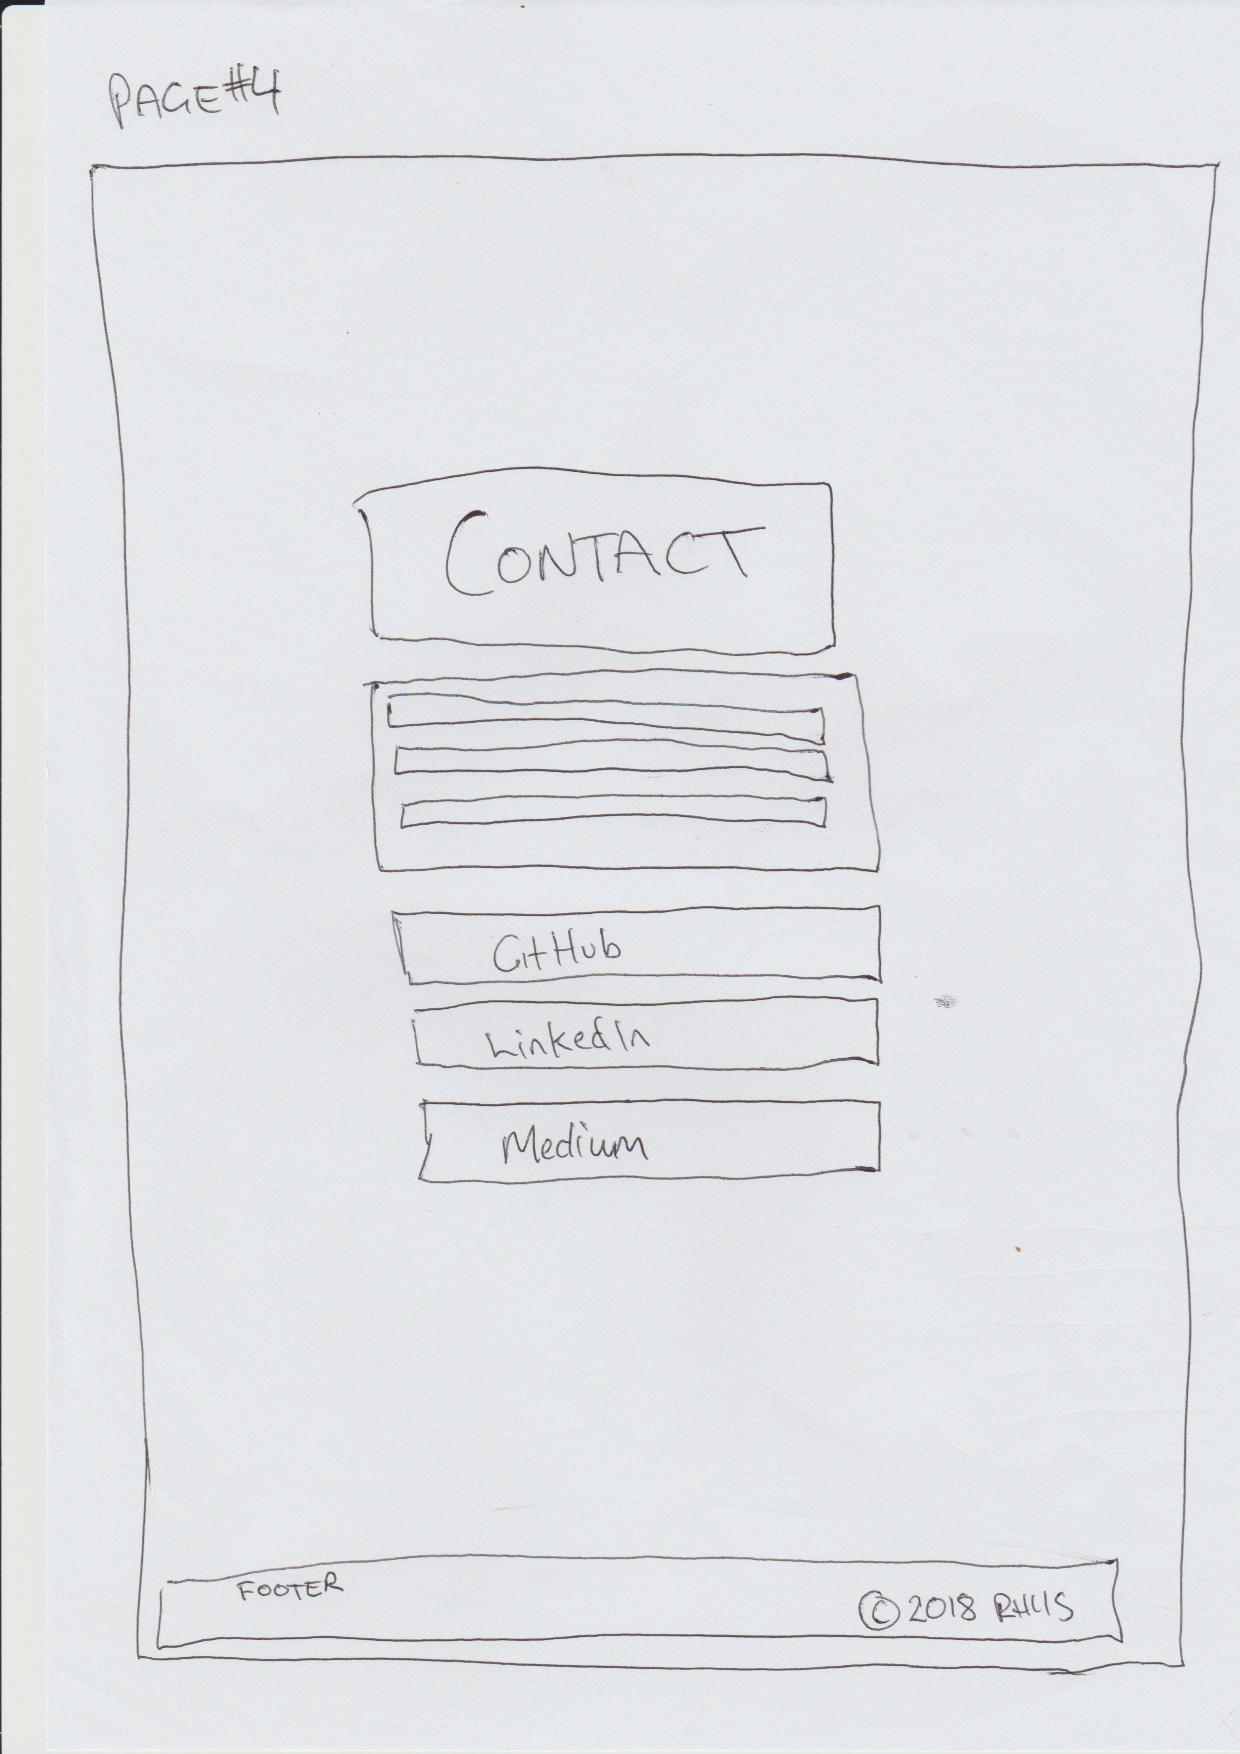 PAGE#4
CONTACT
GitHub
LinkedIn
Medium
FOOTER
© 2018 RHYS